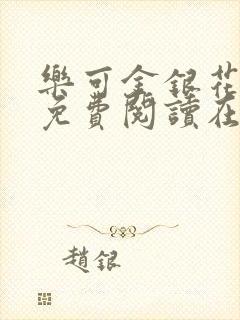 樂可金銀花
免費閱讀在
趙銀